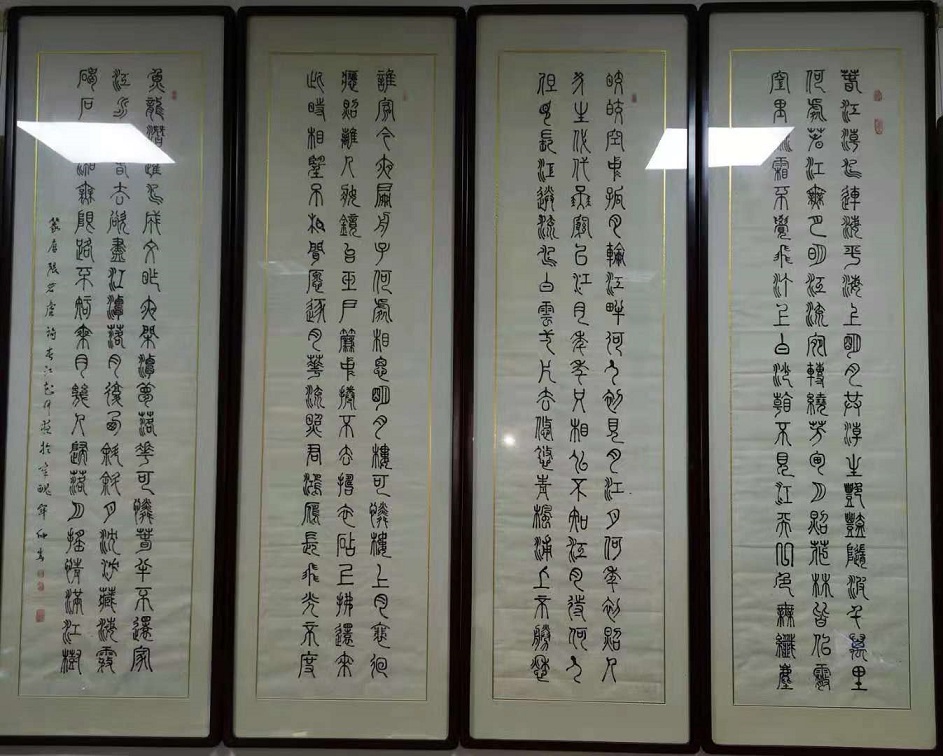 春江潮水連海平海上明月共潮生灧灧隨波千萬里
何處春江無月明江流宛轉繞芳甸月照花林皆似霰
空里流霜不覺飛汀上白沙看不見江天一色無纖塵
皎皎空中孤月輪江畔何人初見月江月何年初照人
人生代代無窮已江月年年只相似不知江月待何人
但見長江送流水白雲一片去悠悠青楓浦上不勝愁
誰家今夜扁舟子何處相思明月樓可憐樓上月裵回
應照離人妝鏡台玉戶簾中捲不去搗衣砧上拂還來
此時相望不相聞願逐月華流照君鴻雁長飛光不度
魚龍潛躍水成文昨夜閒潭夢落花可憐春半不還家
江水春去欲盡江潭落月復西斜斜月沈沈藏海霧
碣石湘無限路不知乘月幾人歸落月搖情滿江樹
錄唐張若虛詩春江花月夜於